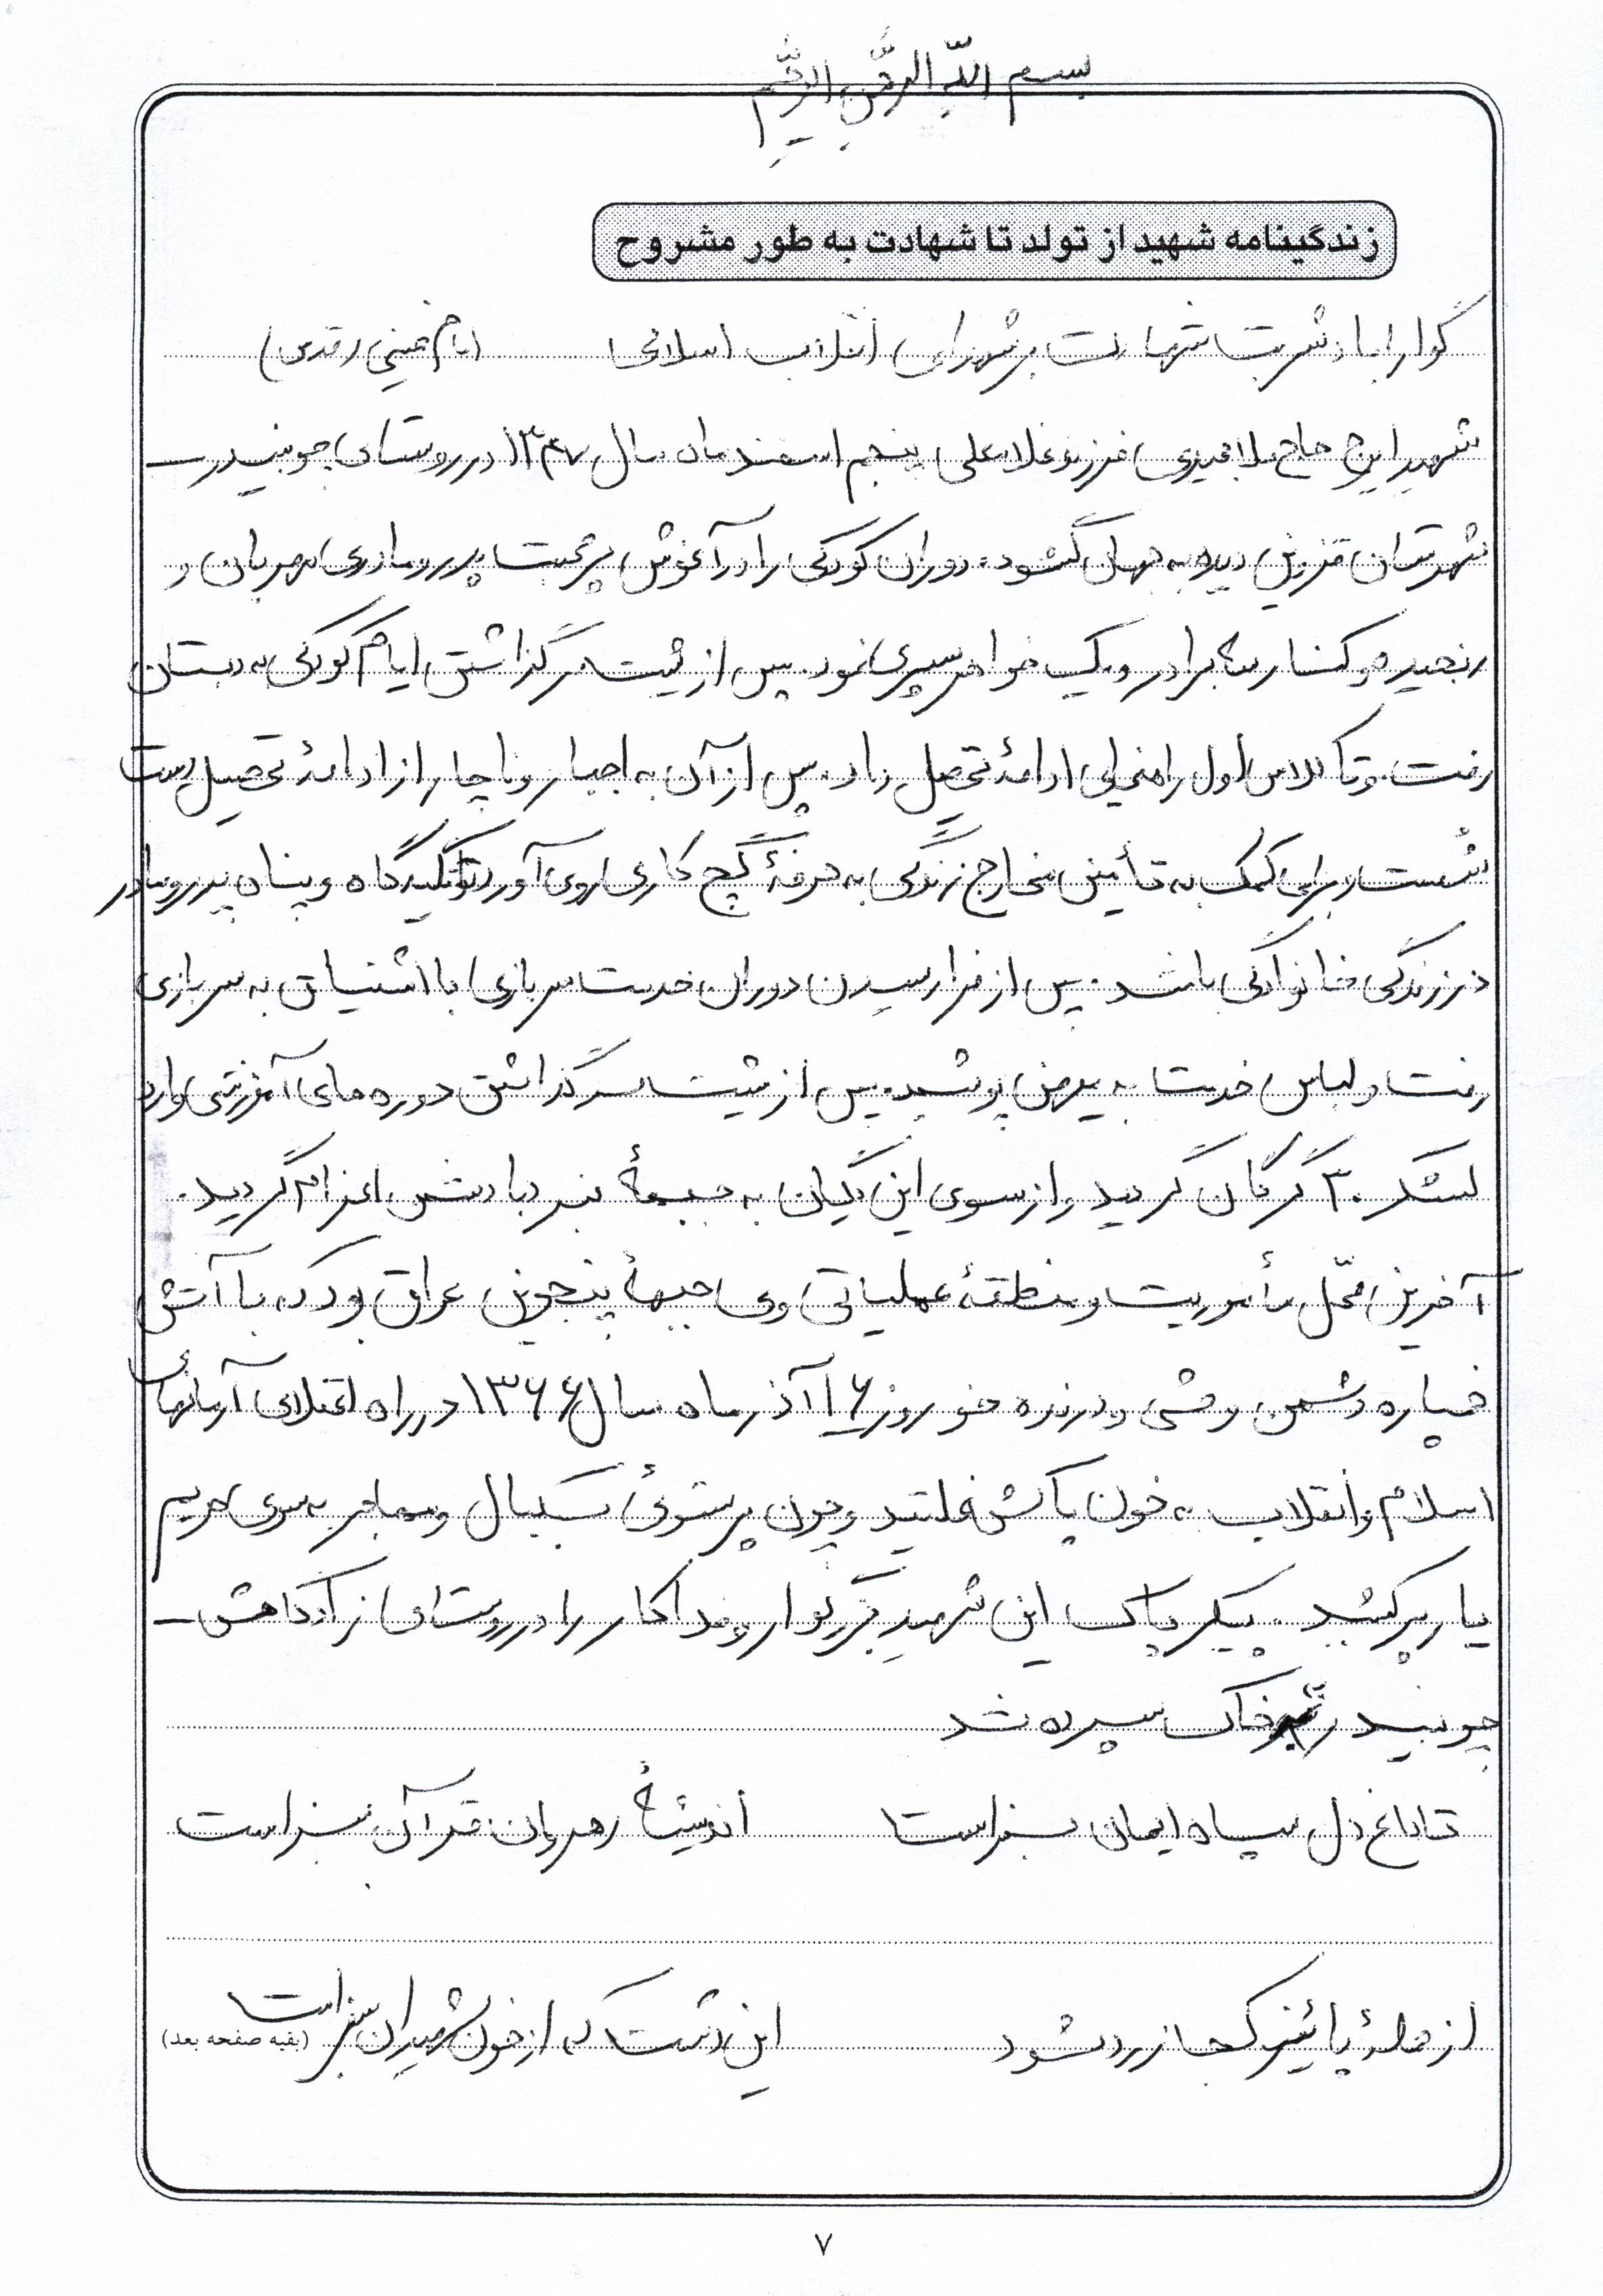 بسم الله الرحمن الرحیم
زندگینامه شهید از تولد تا شهادت به طور مشروح
گوارا باد شربت شهادت بر شهدای انقلاب اسلامی (امام خمینی (قدس)
شهید ایرج حاج ملا فرزند غلامعلی پنجم اسفند ماه سال ۱۳۴۷ در روستای چوبیندر
شهرستان قزوین دیده به جهان گشود. دوران کودکی را در آغوش پر محبت پدر و مادری مهربان و
رنجیده و کنار سه برادر و یک خواهر سپری نمود. پس از پشت سر گذاشتن ایام کودکی به دبستان
رفت و تا کلاس اول راهنمایی ادامهٔ تحصیل داد. پس از آن به اجبار و ناچار از ادامهٔ تحصیل دست
شست و برای کمک به تأمین مخارج زندگی به حرفهٔ گچ کاری روی آورد تا تکیه گاه و پناه پدر و مادر
در زندگی خانوادگی باشد. پس از فرا رسیدن دوران خدمت سربازی با اشتیاق به سربازی
رفت و لباس خدمت به پوشید. پس از پشت سر گذاشتن دوره های آموزشی وارد
لشکر ۳۰ گرگان گردید و از سوی این یگان به جبههٔ نبرد با دشمن اعزام گردید.
آخرین محل مأموریت و منطقهٔ عملیاتی وی جبههٔ پنجوین عراق بود که با آتش
خمپاره دشمن وحشی و درنده خو روز ۱۶ آذر ماه سال ۱۳۶۶ در راه اعتلای آرمانهای
اسلام و انقلاب به خون پاکش غلتید و چون پرستوئی سبکبال و مهاجر به سوی حریم
یار پر کشید. پیکر پاک این شهید بزرگوار و فداکار را در روستای زادگاهش
چوبیندر خاک سپرده شد
تا داغ دل سپاه ایمان سبز است اندیشهٔ رهروان قرآن سبز است
از حملهٔ پائیز کجا زرد شود این دشت که از خون شهیدان سبز است
(بقیه صفحه بعد)
۷